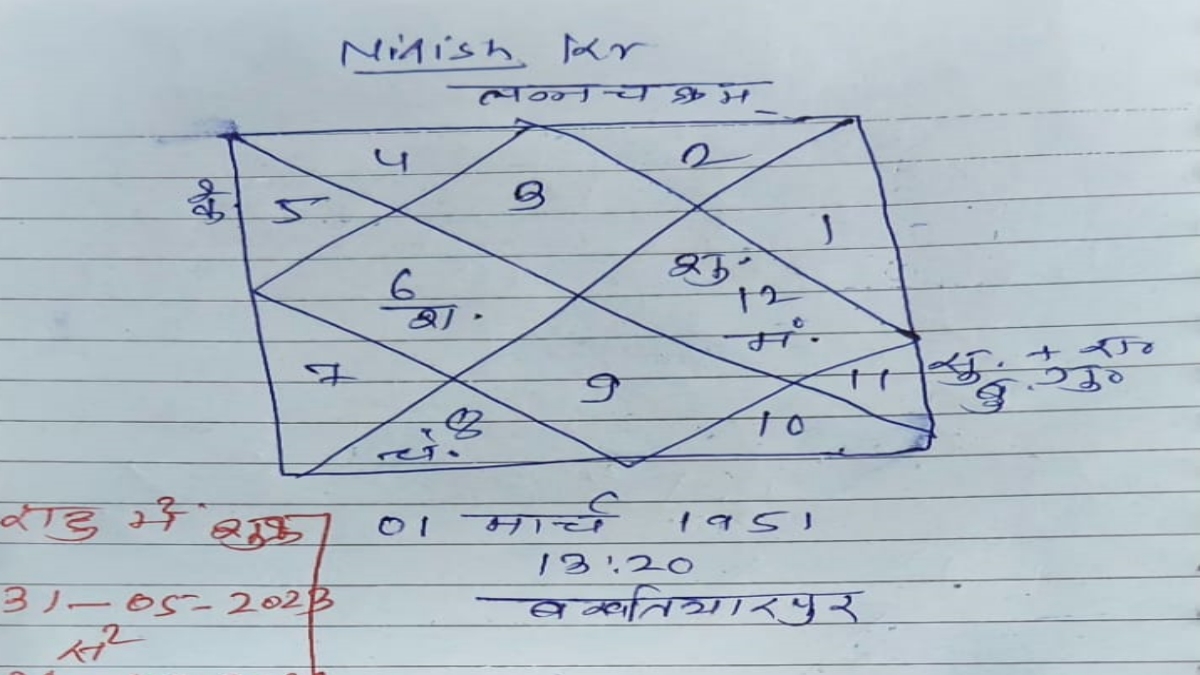 Nitish Kr
लग्नचक्रम
4
2
के.
5
3
1
शु.
6
12
श.
मं.
सु. + रा०
7
9
11
बु. गु०
8
10
चं.
राहु में शुक्र
01 मार्च 1951
13:20
31-05-2023
बख्तियारपुर
से